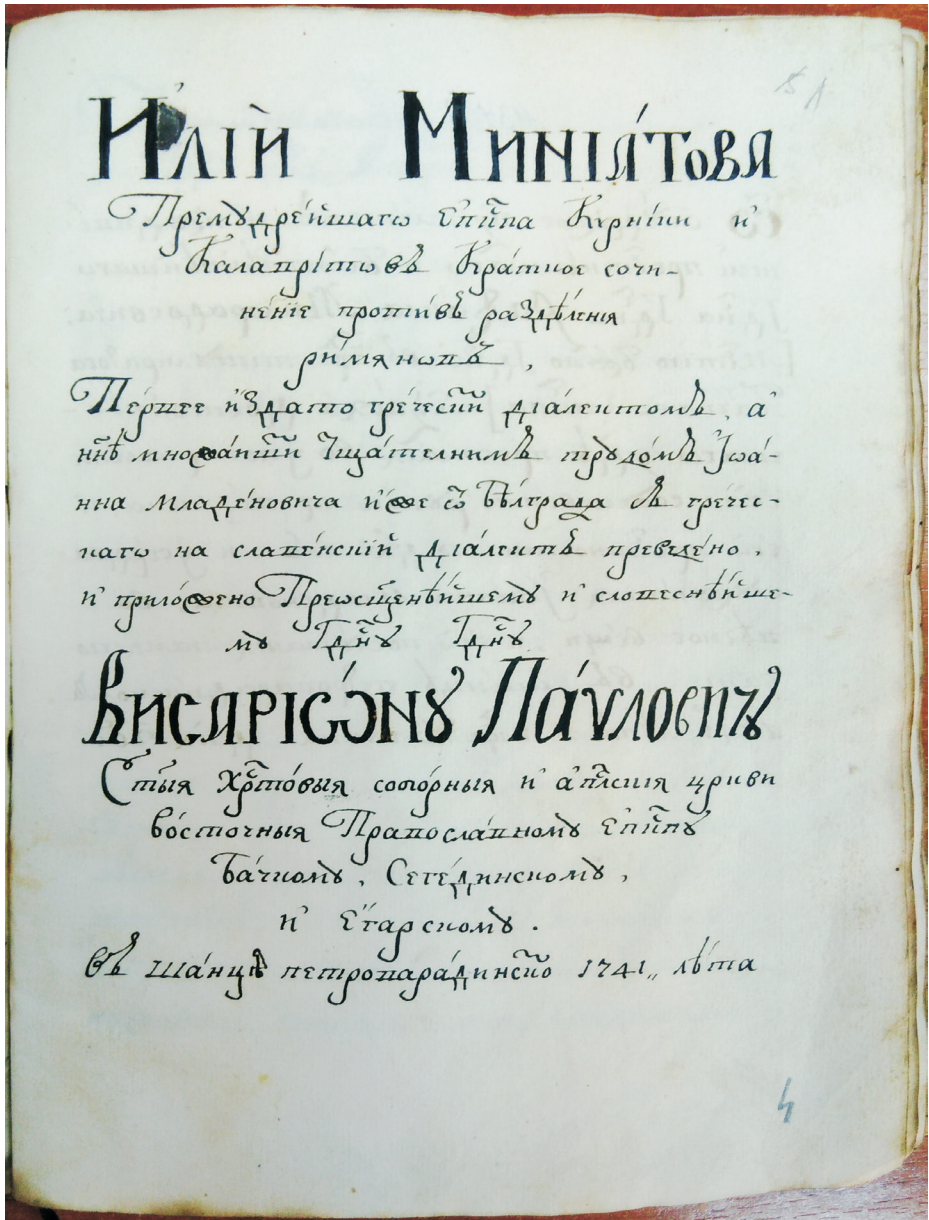 И҆лїй Минїа́това
Премꙋдре́йшагѡ Е҆пⷭ҇кпа Кернїки и҆
Калаврі́тѡвъ Кра́ткое сочи-
не́нїе проти́въ раздѣ́ленїѧ
ри́млѧновъ,
Пе́рвее и҆́здато гре́ческим дїале́ктомъ, а҆
нн҃ѣ множа́йшим тща́телнимъ трꙋдо́мъ І҆ѡа́-
нна младе́новича и҆́же ѿ Бѣ́лграда съ грече́с-
кагѡ на славе́нскїй дїале́ктъ преведено,
и҆ прило́жено Преѡсщ҃еннѣ́йшемꙋ и҆ словеснѣ́йше-
мꙋ Гдⷭ҇нꙋ Гдⷭ҇нꙋ
Висарїѡ́нꙋ Па́ѵловичꙋ
Ст҃ыѧ Хрⷭ҇то́выѧ собо́рныѧ и҆ а҆пⷭ҇лскїѧ цркви
во́сточныѧ Правосла́вномꙋ Е҆пⷭ҇кпꙋ
Ба́чкомꙋ, Сегеди́нскомꙋ,
и҆ Е҆га́рскомꙋ.
Въ ша́нцѣ петровара́динско 1741,, лѣ́та
4